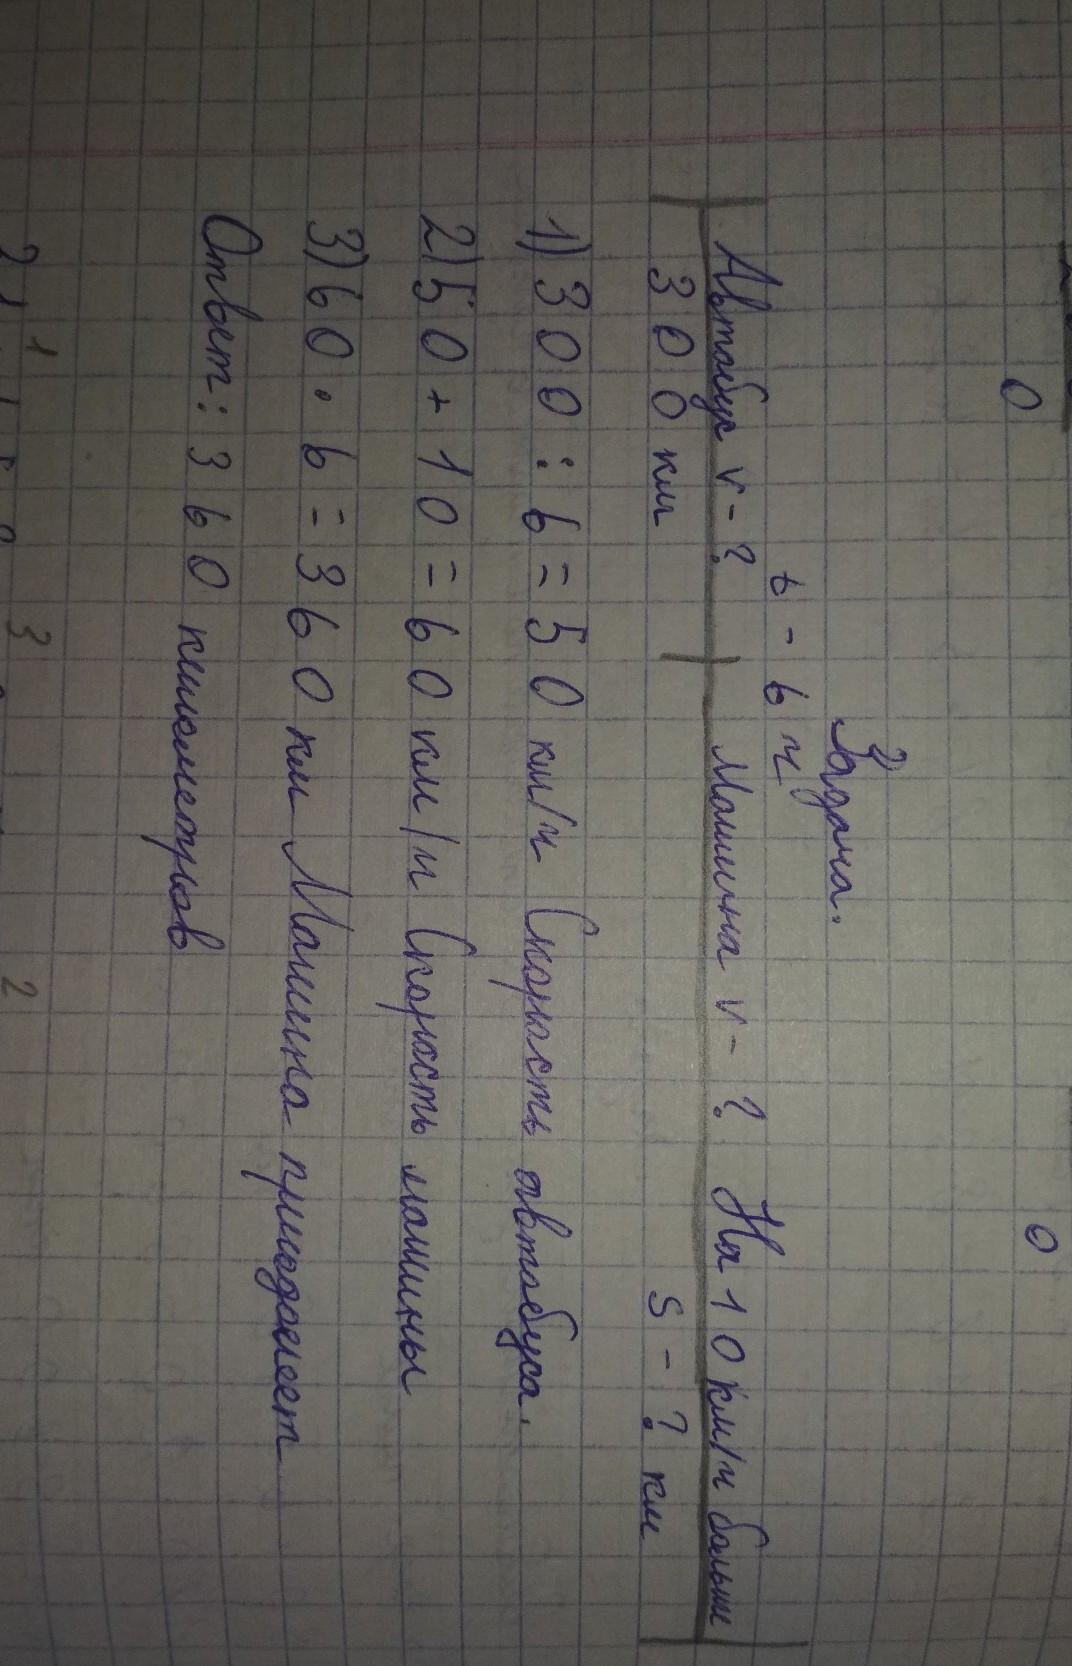 Задача.
t - 6 ч
Автобус v - ? Машина v - ? На 10 км/ч больше
300 км S - ? км
1) 300 : 6 = 50 км/ч Скорость автобуса.
2) 50 + 10 = 60 км/ч Скорость машины
3) 60 · 6 = 360 км Машина
Ответ: 360 километров